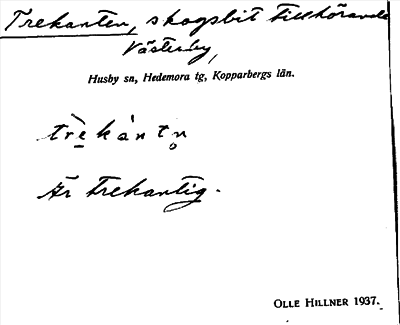 Trekanten, skogsbit tillhörande
Västerby,
Husby sn, Hedemora tg, Kopparbergs län.
trè̱kàntn̥
Är trekantig.
OLLE HILLNER 1937.